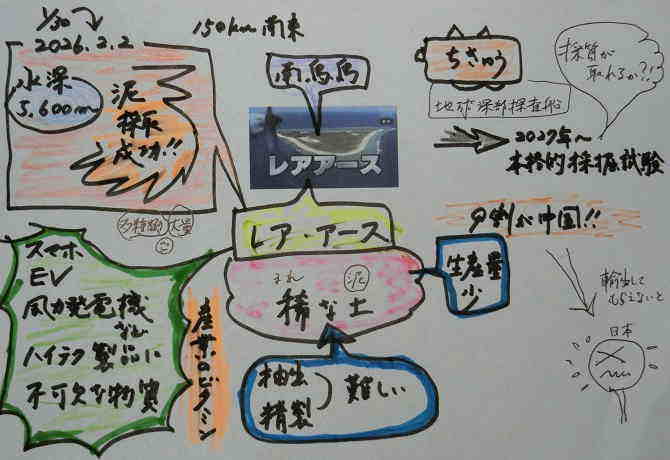 1/30
2026.2.2
水深
5,600m
泥
採取
成功!!
150km 南東
南鳥島
レアアース
レア・アース
まれ
稀な土
泥
ちきゅう
地球深部探査船
採算が
取れるか?!
2027年~
本格的採掘試験
9割が中国!!
輸出して
もらえないと
日本
生産量
少
多種類
大量
に
スマホ
EV
風力発電機
など
ハイテク製品に
不可欠な物質
産業のビタミン
抽出
精製
難しい